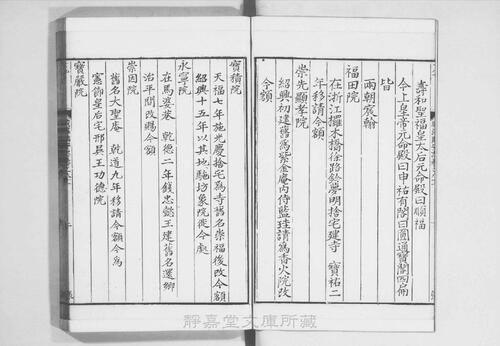 壽和聖福皇太后元命殿曰順福
今上皇帝元命殿曰申祐有閣曰圓通寶閣四扁
皆
兩朝宸翰
福田院
在浙江羅木橋徐路鈐夢明捨宅建寺 寶祐二
年移請今額
崇先顯孝院
紹興初建舊為紫金庵内侍監珪請為香火院改
今額
寶積院
天福七年施光慶捨宅為寺舊名崇福後改今額
紹興十五年以其地駞坊象院徙今處
水寧院
在馬婆巷 乾德二年錢忠懿王建舊名還鄉
治平間改賜今額
崇因院
舊名大聖庵 乾道九年移請今額今為
憲節皇后宅邢吳王功德院
寶嚴院
靜嘉堂文庫所藏